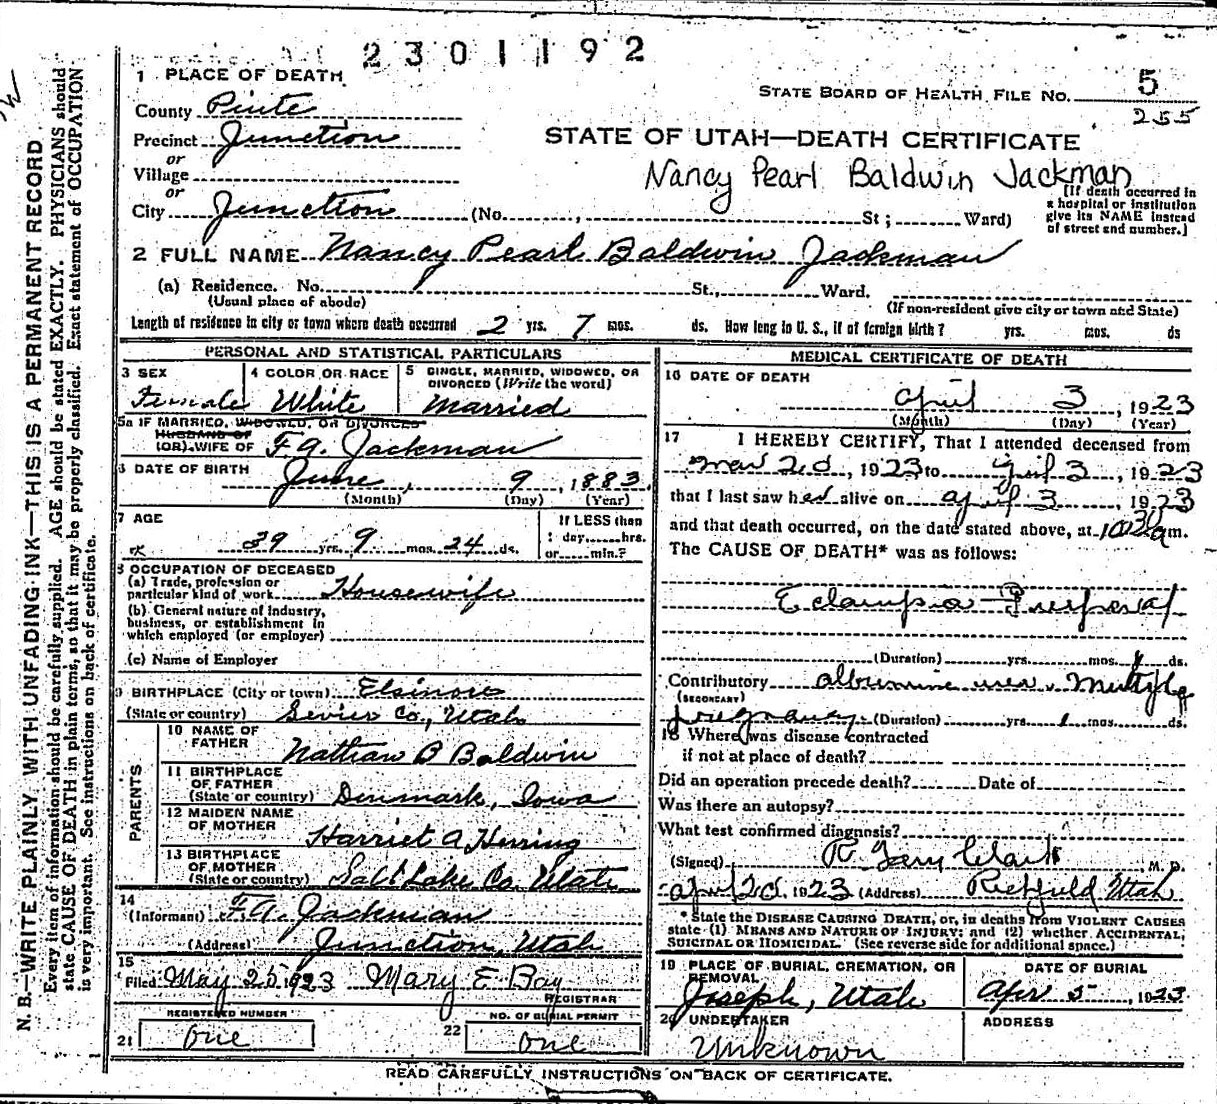 2301192
1 PLACE OF DEATH
STATE BOARD OF HEALTH FILE NO. 5
255
County Piute
Precinct Junction
STATE OF UTAH—DEATH CERTIFICATE
or
Village
Nancy Pearl Baldwin Jackman
or
City Junction (No. , St; Ward)
[If death occurred in
a hospital or institution
give its NAME instead
of street and number.]
2 FULL NAME Nancy Pearl Baldwin Jackman
(a) Residence. No. St., Ward.
(Usual place of abode) (If non-resident give city or town and State)
Length of residence in city or town where death occurred 2 yrs. 7 mos. ds. How long in U. S., if of foreign birth? yrs. mos. ds
PERSONAL AND STATISTICAL PARTICULARS
3 SEX
Female
4 COLOR OR RACE
White
5 SINGLE, MARRIED, WIDOWED, OR
DIVORCED (Write the word)
Married
5a IF MARRIED, WIDOWED, OR DIVORCED
HUSBAND OF
(OR) WIFE OF F. A. Jackman
6 DATE OF BIRTH
June, 9, 1883
(Month) (Day) (Year)
7 AGE
39 yrs. 9 mos. 24 ds.
If LESS than
1 day, hrs.
or min.?
8 OCCUPATION OF DECEASED
(a) Trade, profession or
particular kind of work Housewife
(b) General nature of industry,
business, or establishment in
which employed (or employer)
(c) Name of Employer
9 BIRTHPLACE (City or town) Elsinore
(State or country) Sevier Co., Utah
PARENTS
10 NAME OF
FATHER Nathan B Baldwin
11 BIRTHPLACE
OF FATHER
(State or country) Denmark, Iowa
12 MAIDEN NAME
OF MOTHER Harriet A Herring
13 BIRTHPLACE
OF MOTHER
(State or country) Salt Lake Co. Utah
14
(Informant) F. A. Jackman
(Address) Junction, Utah
15
Filed May 25 1923 Mary E Bay
REGISTRAR
REGISTERED NUMBER
21 One
NO. OF BURIAL PERMIT
22 One
MEDICAL CERTIFICATE OF DEATH
16 DATE OF DEATH
April 3, 1923
(Month) (Day) (Year)
17 I HEREBY CERTIFY, That I attended deceased from
Mar 2d, 1923 to April 3, 1923
that I last saw her alive on April 3, 1923
and that death occurred, on the date stated above, at 1030a m.
The CAUSE OF DEATH* was as follows:
Eclampsia Puerperal
(Duration) yrs. mos. ds.
Contributory albumine urea Multiple
(SECONDARY)
pregnancy (Duration) yrs. 1 mos. ds.
18 Where was disease contracted
if not at place of death?
Did an operation precede death? Date of
Was there an autopsy?
What test confirmed diagnosis?
(Signed) R. Clark M. D.
April 2d, 1923 (Address) Richfield Utah
* State the DISEASE CAUSING DEATH, or, in deaths from VIOLENT CAUSES
state (1) MEANS AND NATURE OF INJURY; and (2) whether ACCIDENTAL,
SUICIDAL OR HOMICIDAL. (See reverse side for additional space.)
19 PLACE OF BURIAL, CREMATION, OR
REMOVAL
Joseph, Utah
DATE OF BURIAL
Apr 5, 1923
20 UNDERTAKER
Unknown
ADDRESS
READ CAREFULLY INSTRUCTIONS ON BACK OF CERTIFICATE.
N. B.—WRITE PLAINLY WITH UNFADING INK—THIS IS A PERMANENT RECORD.
Every item of information should be carefully supplied. AGE should be stated EXACTLY. PHYSICIANS should
state CAUSE OF DEATH in plain terms, so that it may be properly classified. Exact statement of OCCUPATION
is very important. See instructions on back of certificate.